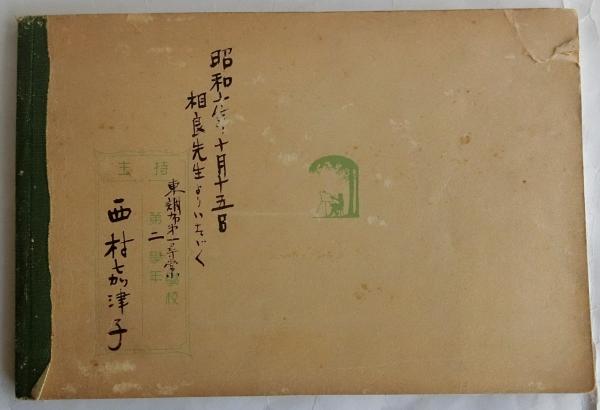 昭和六年十月十五日
相良先生よりいたゞく
持主
東調布第一尋常小學校
第二學年
西村嘉津子